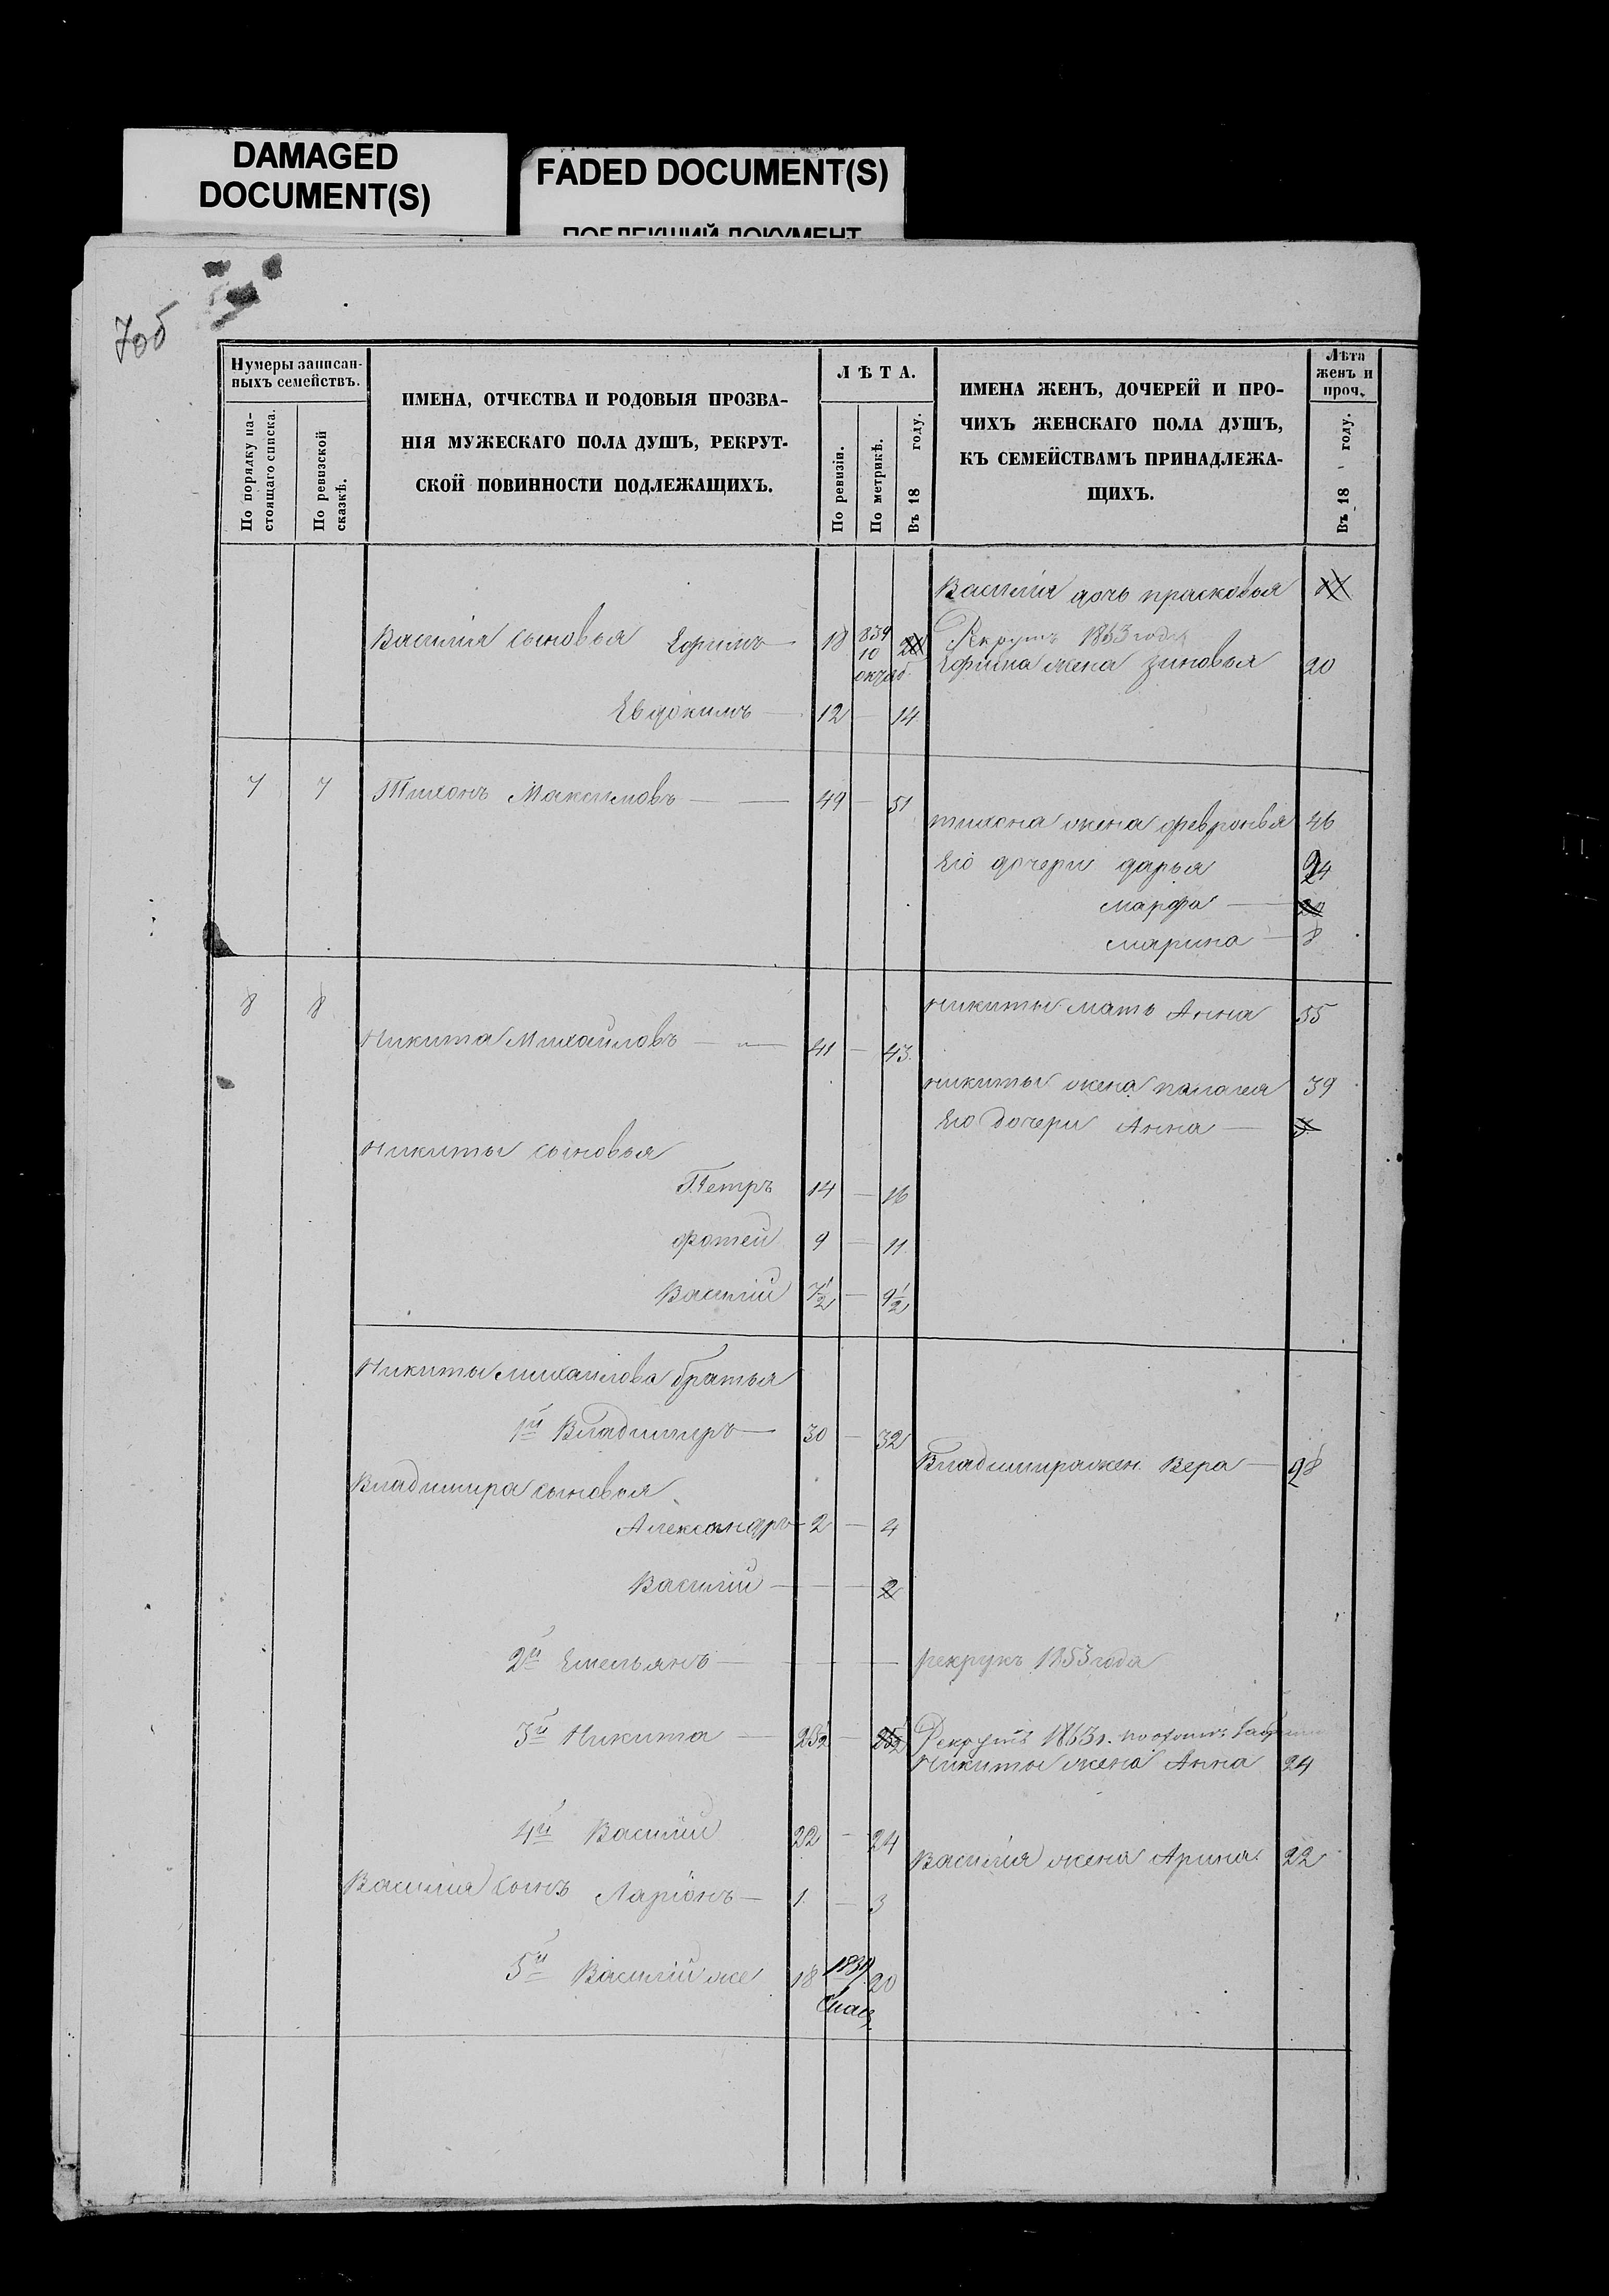 DAMAGED
DOCUMENT(S)
FADED DOCUMENT(S)
ПОБЛЕКШИЙ ДОКУМЕНТ
7об
Нумеры записан-
ныхъ семействъ.
По порядку на-
стоящаго списка.
По ревизской
сказкѣ.
ИМЕНА, ОТЧЕСТВА И РОДОВЫЯ ПРОЗВА-
НІЯ МУЖЕСКАГО ПОЛА ДУШЪ, РЕКРУТ-
СКОЙ ПОВИННОСТИ ПОДЛЕЖАЩИХЪ.
ЛѢТА.
По ревизіи.
По метрикѣ.
Въ 18 году.
ИМЕНА ЖЕНЪ, ДОЧЕРЕЙ И ПРО-
ЧИХЪ ЖЕНСКАГО ПОЛА ДУШЪ,
КЪ СЕМЕЙСТВАМЪ ПРИНАДЛЕЖА-
ЩИХЪ.
Лѣта
женъ и
проч.
Въ 18 году.
Василія дочь прасковья
Василія сыновья Ефимъ 18 839 10 октяб
Рекрутъ 1863 года
Ефима жена зиновья 20
Евдокимъ 12 — 14
7 7 Тихонъ Максимовъ — 49 — 51
тихона жена февронья 46
Его дочери дарья 24
марфа —
марина — 8
8 8
никиты мать Анна 55
Никита Михаиловъ — 41 — 43
никиты жена палагея 39
Его дочери Анна —
Никиты сыновья
Петръ 14 — 16
фотей 9 — 11
Василій 7½ — 9½
Никиты михаилова братья
1й Владимиръ — 30 — 32
Владимира жен. Вера — 28
Владимира сыновья
Александръ — 2 — 4
Василий — 2
2й Емельянъ — рекрукъ 1853 года
3й Никита — 23½ — 25½ Рекрутъ 1863г.
никиты жена Анна 24
4й Василий 22 — 24
Василия жена Арина 22
Василия сынъ Ларіонъ — 1 — 3
5й Василий же 18 20